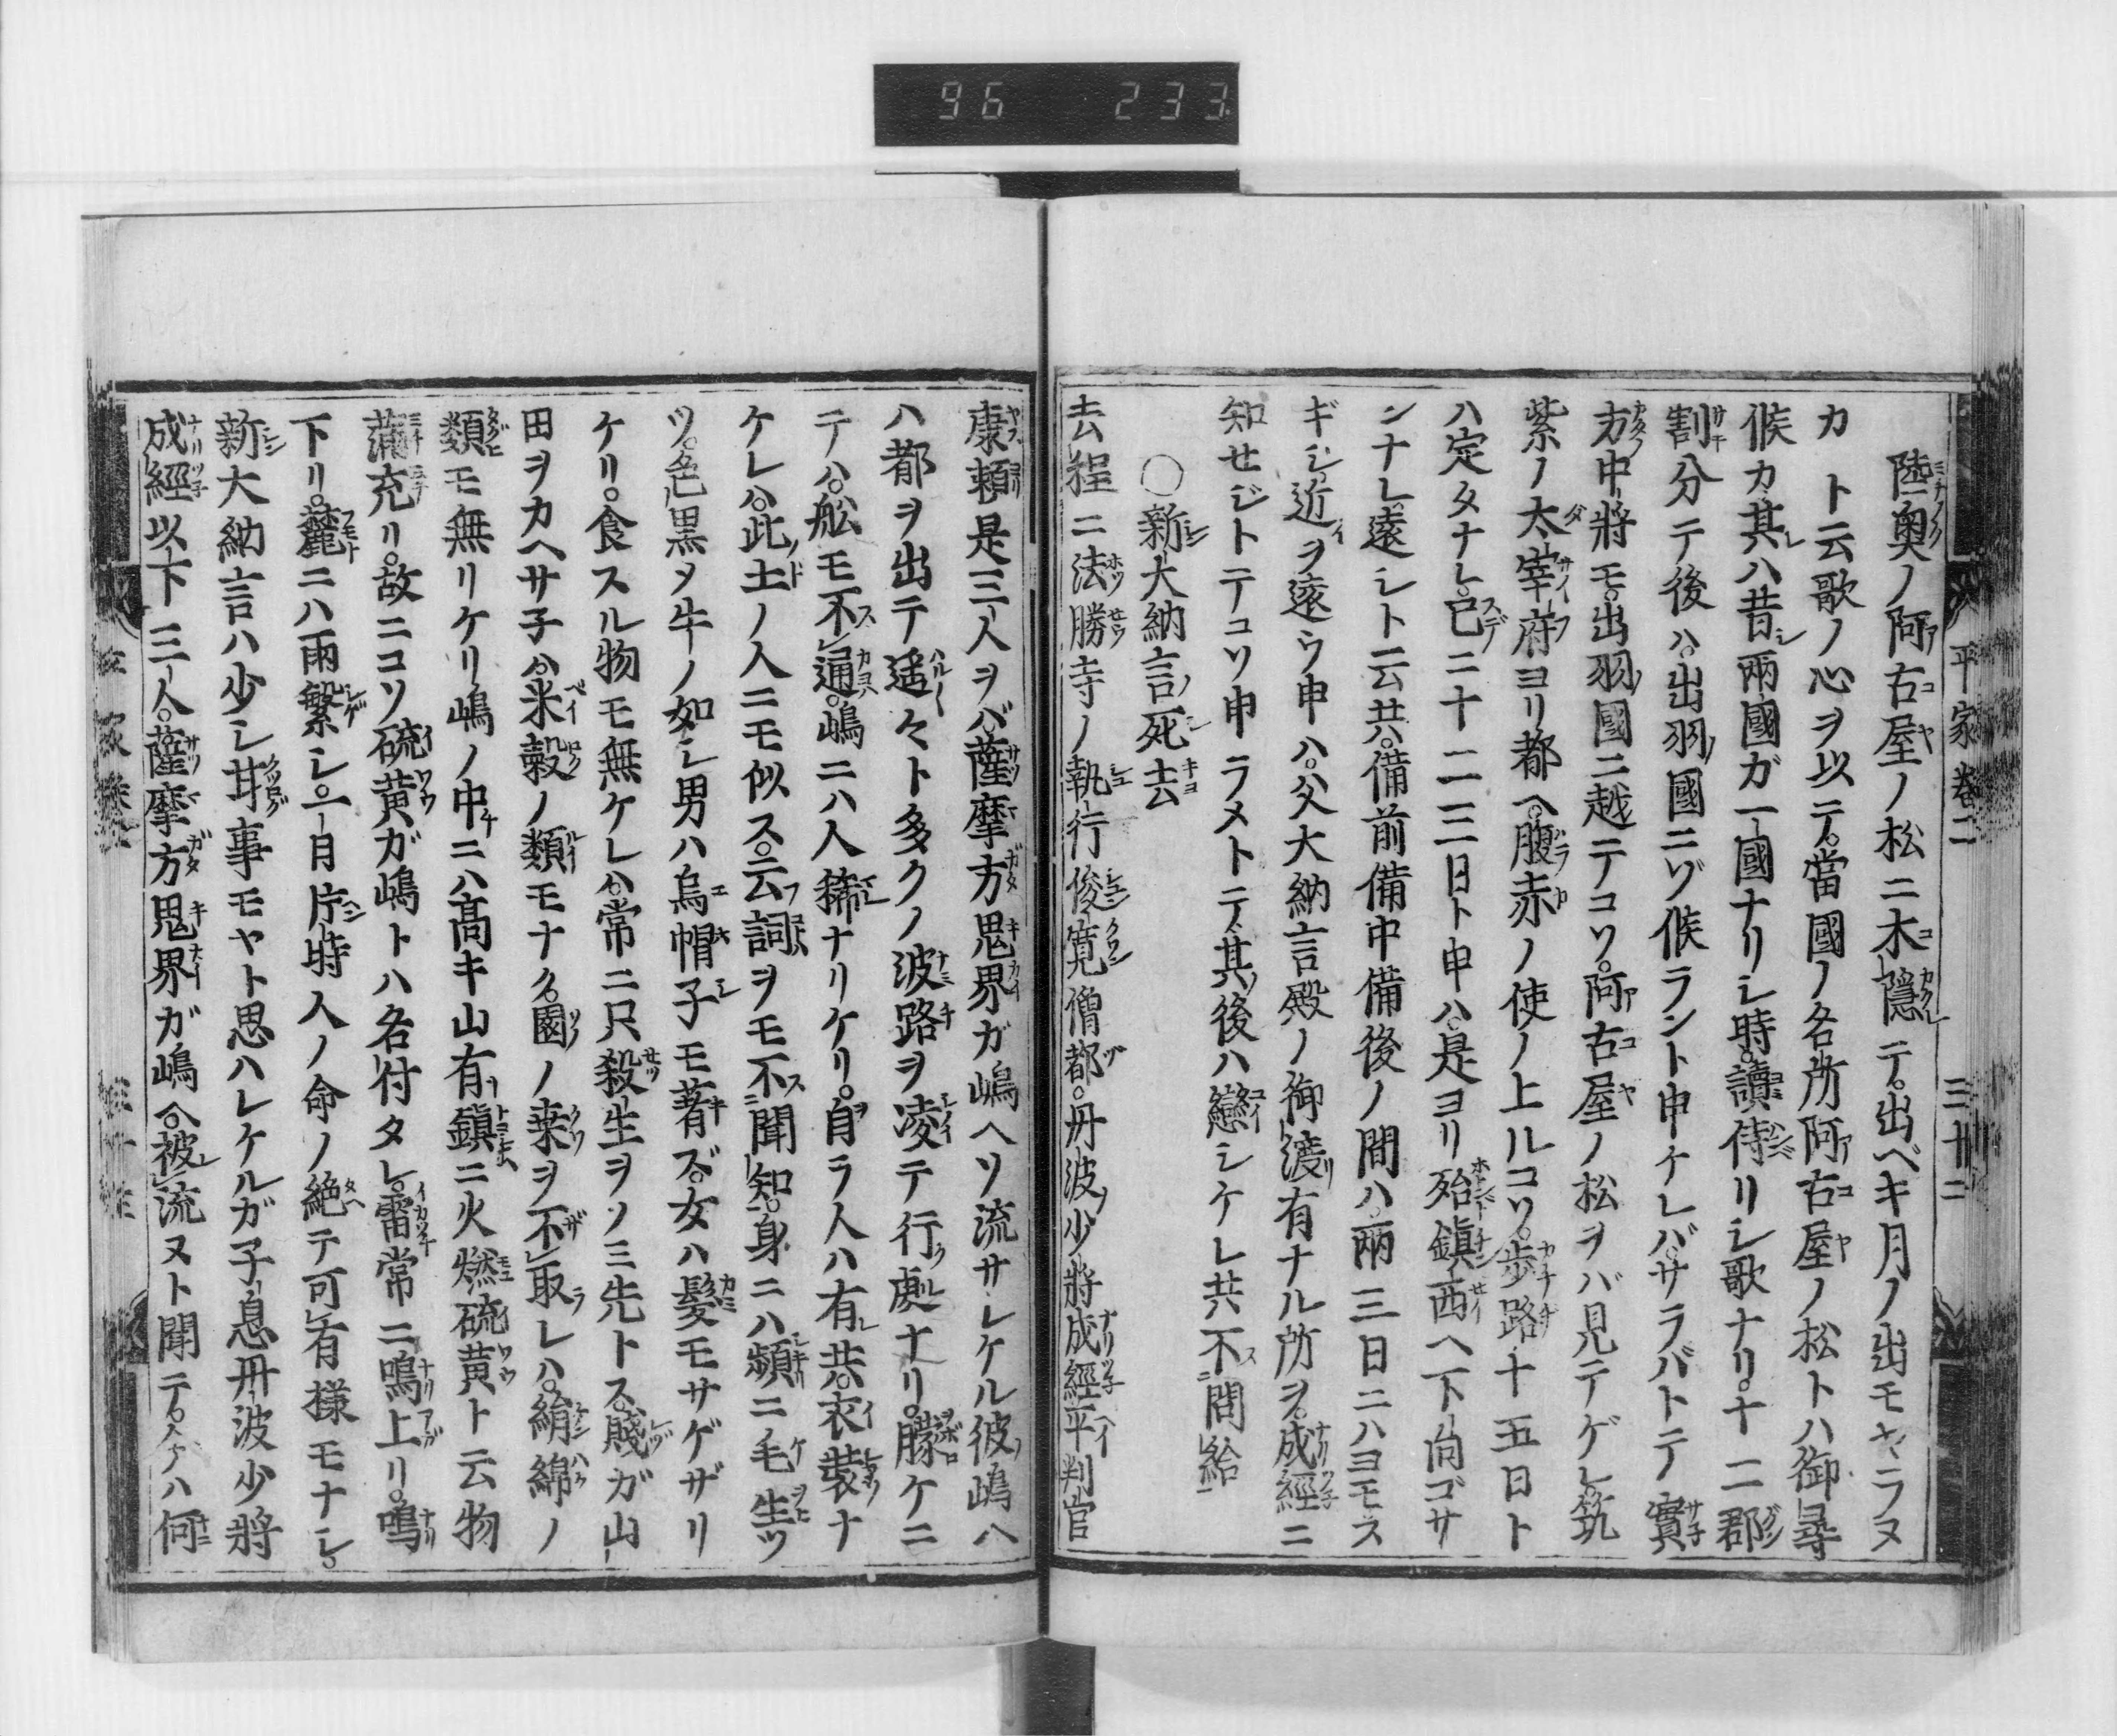 96 233
平家巻二 三十二
陸奥ノ阿古屋ノ松ニ木隠テ。出ベキ月ノ出モヤラヌ
カト云歌ノ心ヲ以テ。當國ノ名所阿古屋ノ松トハ御尋
候カ。其ハ昔シ兩國ガ一國ナリシ時。讀侍リシ歌ナリ。十二郡
割分テ後ハ。出羽國ニゾ候ラント申ケレバ。サラバトテ實
方中將モ。出羽國ニ越テコソ。阿古屋ノ松ヲバ見テゲレ。筑
紫ノ太宰府ヨリ都ヘ。腹赤ノ使ノ上ルコソ。歩路十五日ト
ハ定タナレ。已ニ十二三日ト申ハ。是ヨリ殆鎭西ヘ下向ゴサ
ンナレ。遠シト云共ハ。備前備中備後ノ間ハ。兩三日ニハヨモス
ギジ。近ヲ遠ウ申ハ。父大納言殿ノ御渡有ナル所ヲ。成經ニ
知セジトテコソ申ラメトテ。其後ハ戀シケレ共不問給
○新大納言死去
去程ニ法勝寺ノ執行俊寛僧都。丹波少將成經平判官
康頼是三人ヲバ。薩摩方鬼界ガ嶋ヘソ流サレケル彼嶋ハ
ハ都ヲ出テ遥々ト多クノ波路ヲ凌テ行處ナリ。朧ケニ
テハ。舩モ不通。嶋ニハ人稀ナリケリ。自ラ人ハ有共。衣裝ナ
ケレハ。此土ノ人ニモ似ス。云詞ヲモ不聞知。身ニハ頻ニ毛生ツ
ツ。色黒メ牛ノ如シ男ハ烏帽子モ著ズ。女ハ髪モサゲザリ
ケリ。食スル物モ無ケレハ。常ニ只殺生ヲノミ先トス。賤ガ山
田ヲカヘサ子ハ。米穀ノ類モナク。園ノ桒ヲ不取レハ。絹綿ノ
類モ無リケリ嶋ノ中ニハ髙キ山有鎭ニ火燃硫黄ト云物
滿充リ。故ニコソ硫黄ガ嶋トハ名付タレ。雷常ニ鳴上リ。鳴
下リ。麓ニハ雨繁シ。一日片時人ノ命ノ絶テ可有様モナシ。
新大納言ハ少シ甘事モヤト思ハレケルガ子息丹波少將
成經以下三人。薩摩方鬼界ガ嶋ヘ。被流ヌト聞テ。今ハ何